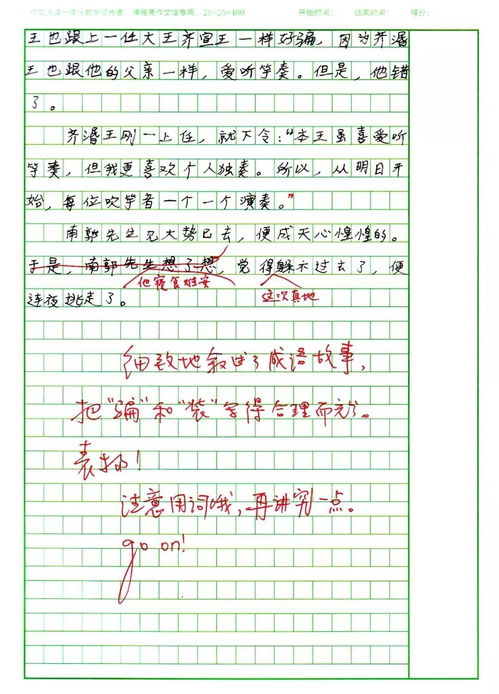 作文 请用作文格专用，20×20=400 开始时间： 结束时间： 得分：
王也跟上一任大王齐宣王一样好骗，因为齐湣
王也跟他的父亲一样，爱听竽奏。但是，他错
了。
齐湣王刚一上任，就下令：“本王虽喜爱听
竽奏，但我更喜欢个人独奏。所以，从明日开
始，每位吹竽者一个一个演奏。”
南郭先生见大势已去，便成天心惶惶的。
于是，南郭先生想了想，觉得躲不过去了，便
他寝食难安 这次真地
连夜逃走了。
细致地叙述了成语故事，
把“骗”和“装”写得合理而充分。
表扬！
注意用词哦，再讲究一点。
go on!